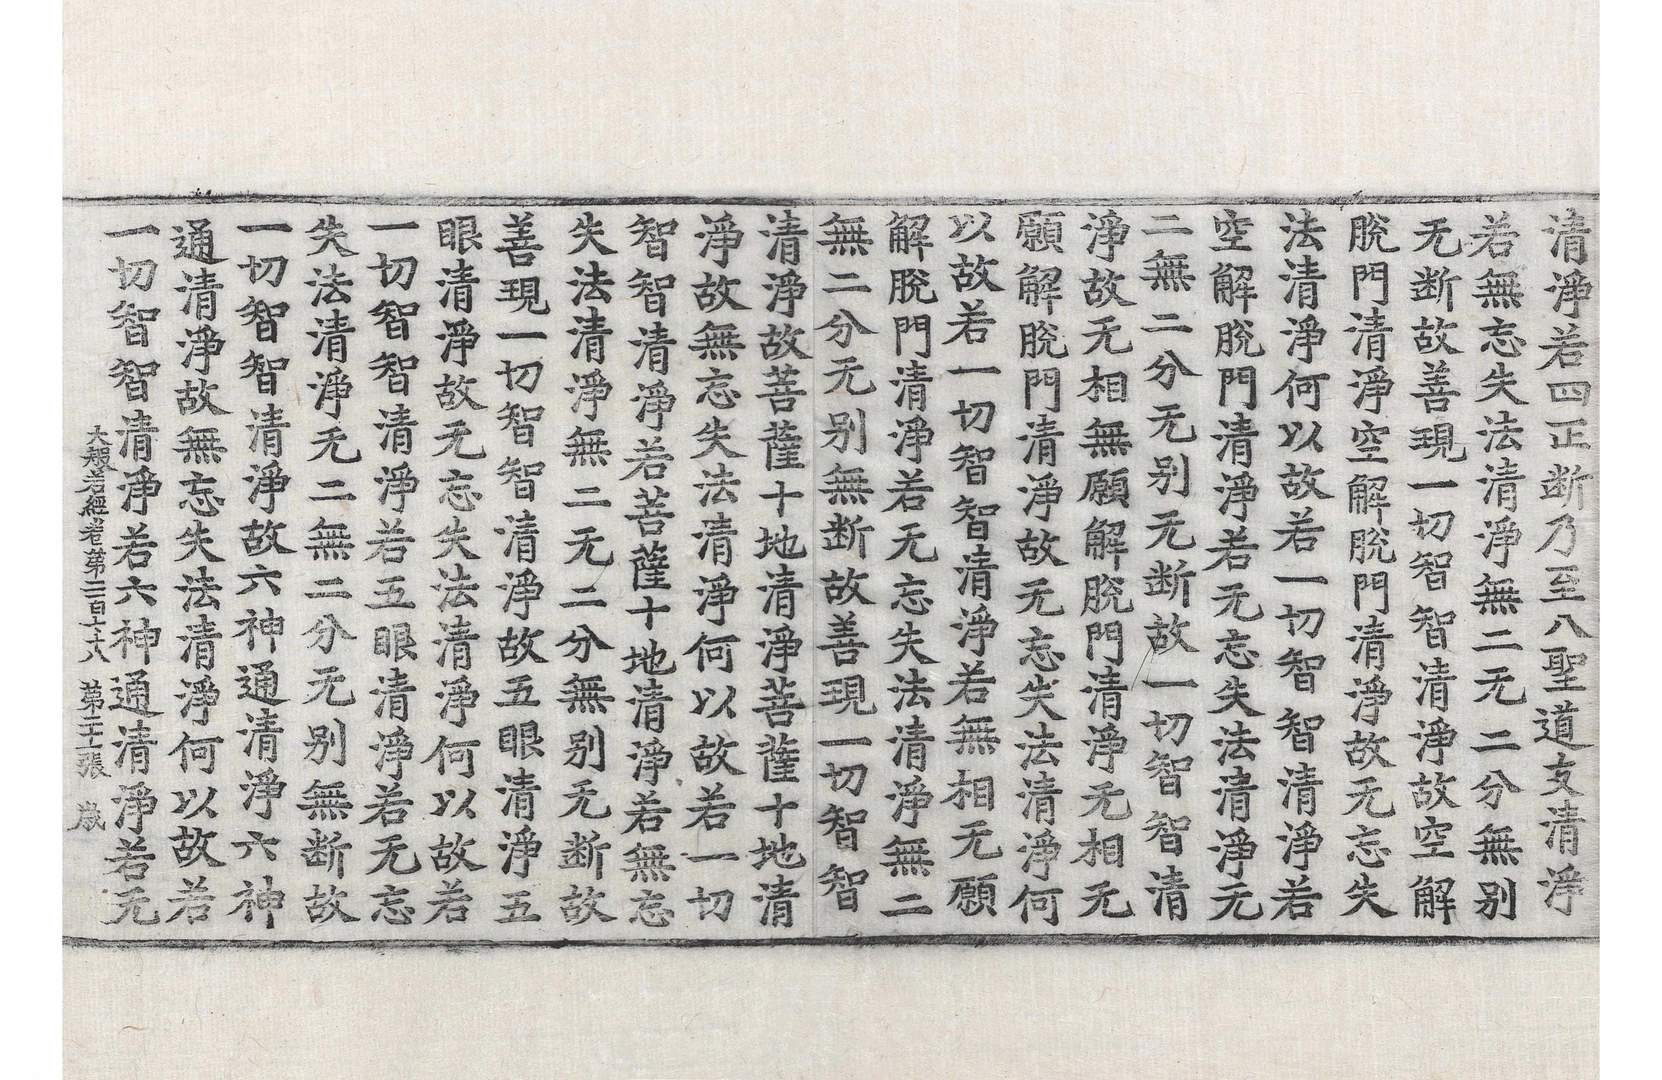 清淨若四正断乃至八聖道支清淨
若無忘失法清淨無二无二分無别
无断故善現一切智智清淨故空解
脫門清淨空解脫門清淨故无忘失
法清淨何以故若一切智智清淨若
空解脫門清淨若无忘失法清淨无
二無二分无别无断故一切智智清
淨故无相無願解脫門清淨无相无
願解脫門清淨故无忘失法清淨何
以故若一切智智清淨若無相无願
解脫門清淨若无忘失法清淨無二
無二分无别無断故善現一切智智
清淨故菩薩十地清淨菩薩十地清
淨故無忘失法清淨何以故若一切
智智清淨若菩薩十地清淨若無忘
失法清淨無二无二分無别无断故
善現一切智智清淨故五眼清淨五
眼清淨故无忘失法清淨何以故若
一切智智清淨若五眼清淨若无忘
失法清淨无二無二分无别無断故
一切智智清淨故六神通清淨六神
通清淨故無忘失法清淨何以故若
一切智智清淨若六神通清淨若无
大般若經卷第二百六十八 第 張 歲